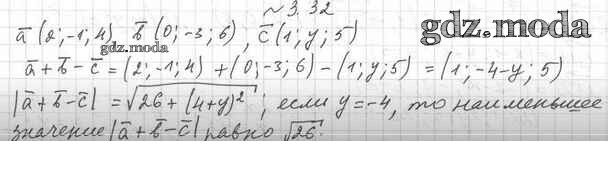 № 3.32
gdz.moda
a̅ (2; -1; 4) b̅ (0; -3; 6), c̅ (1; y; 5)
gdz.moda
a̅ + b̅ - c̅ = (2; -1; 4) + (0; -3; 6) - (1; y; 5) = (1; -4-y; 5)
|a̅ + b̅ - c̅| = √(26 + (4+y)²; если y = -4, то наименьшее
значение |a̅ + b̅ - c̅| равно √26.